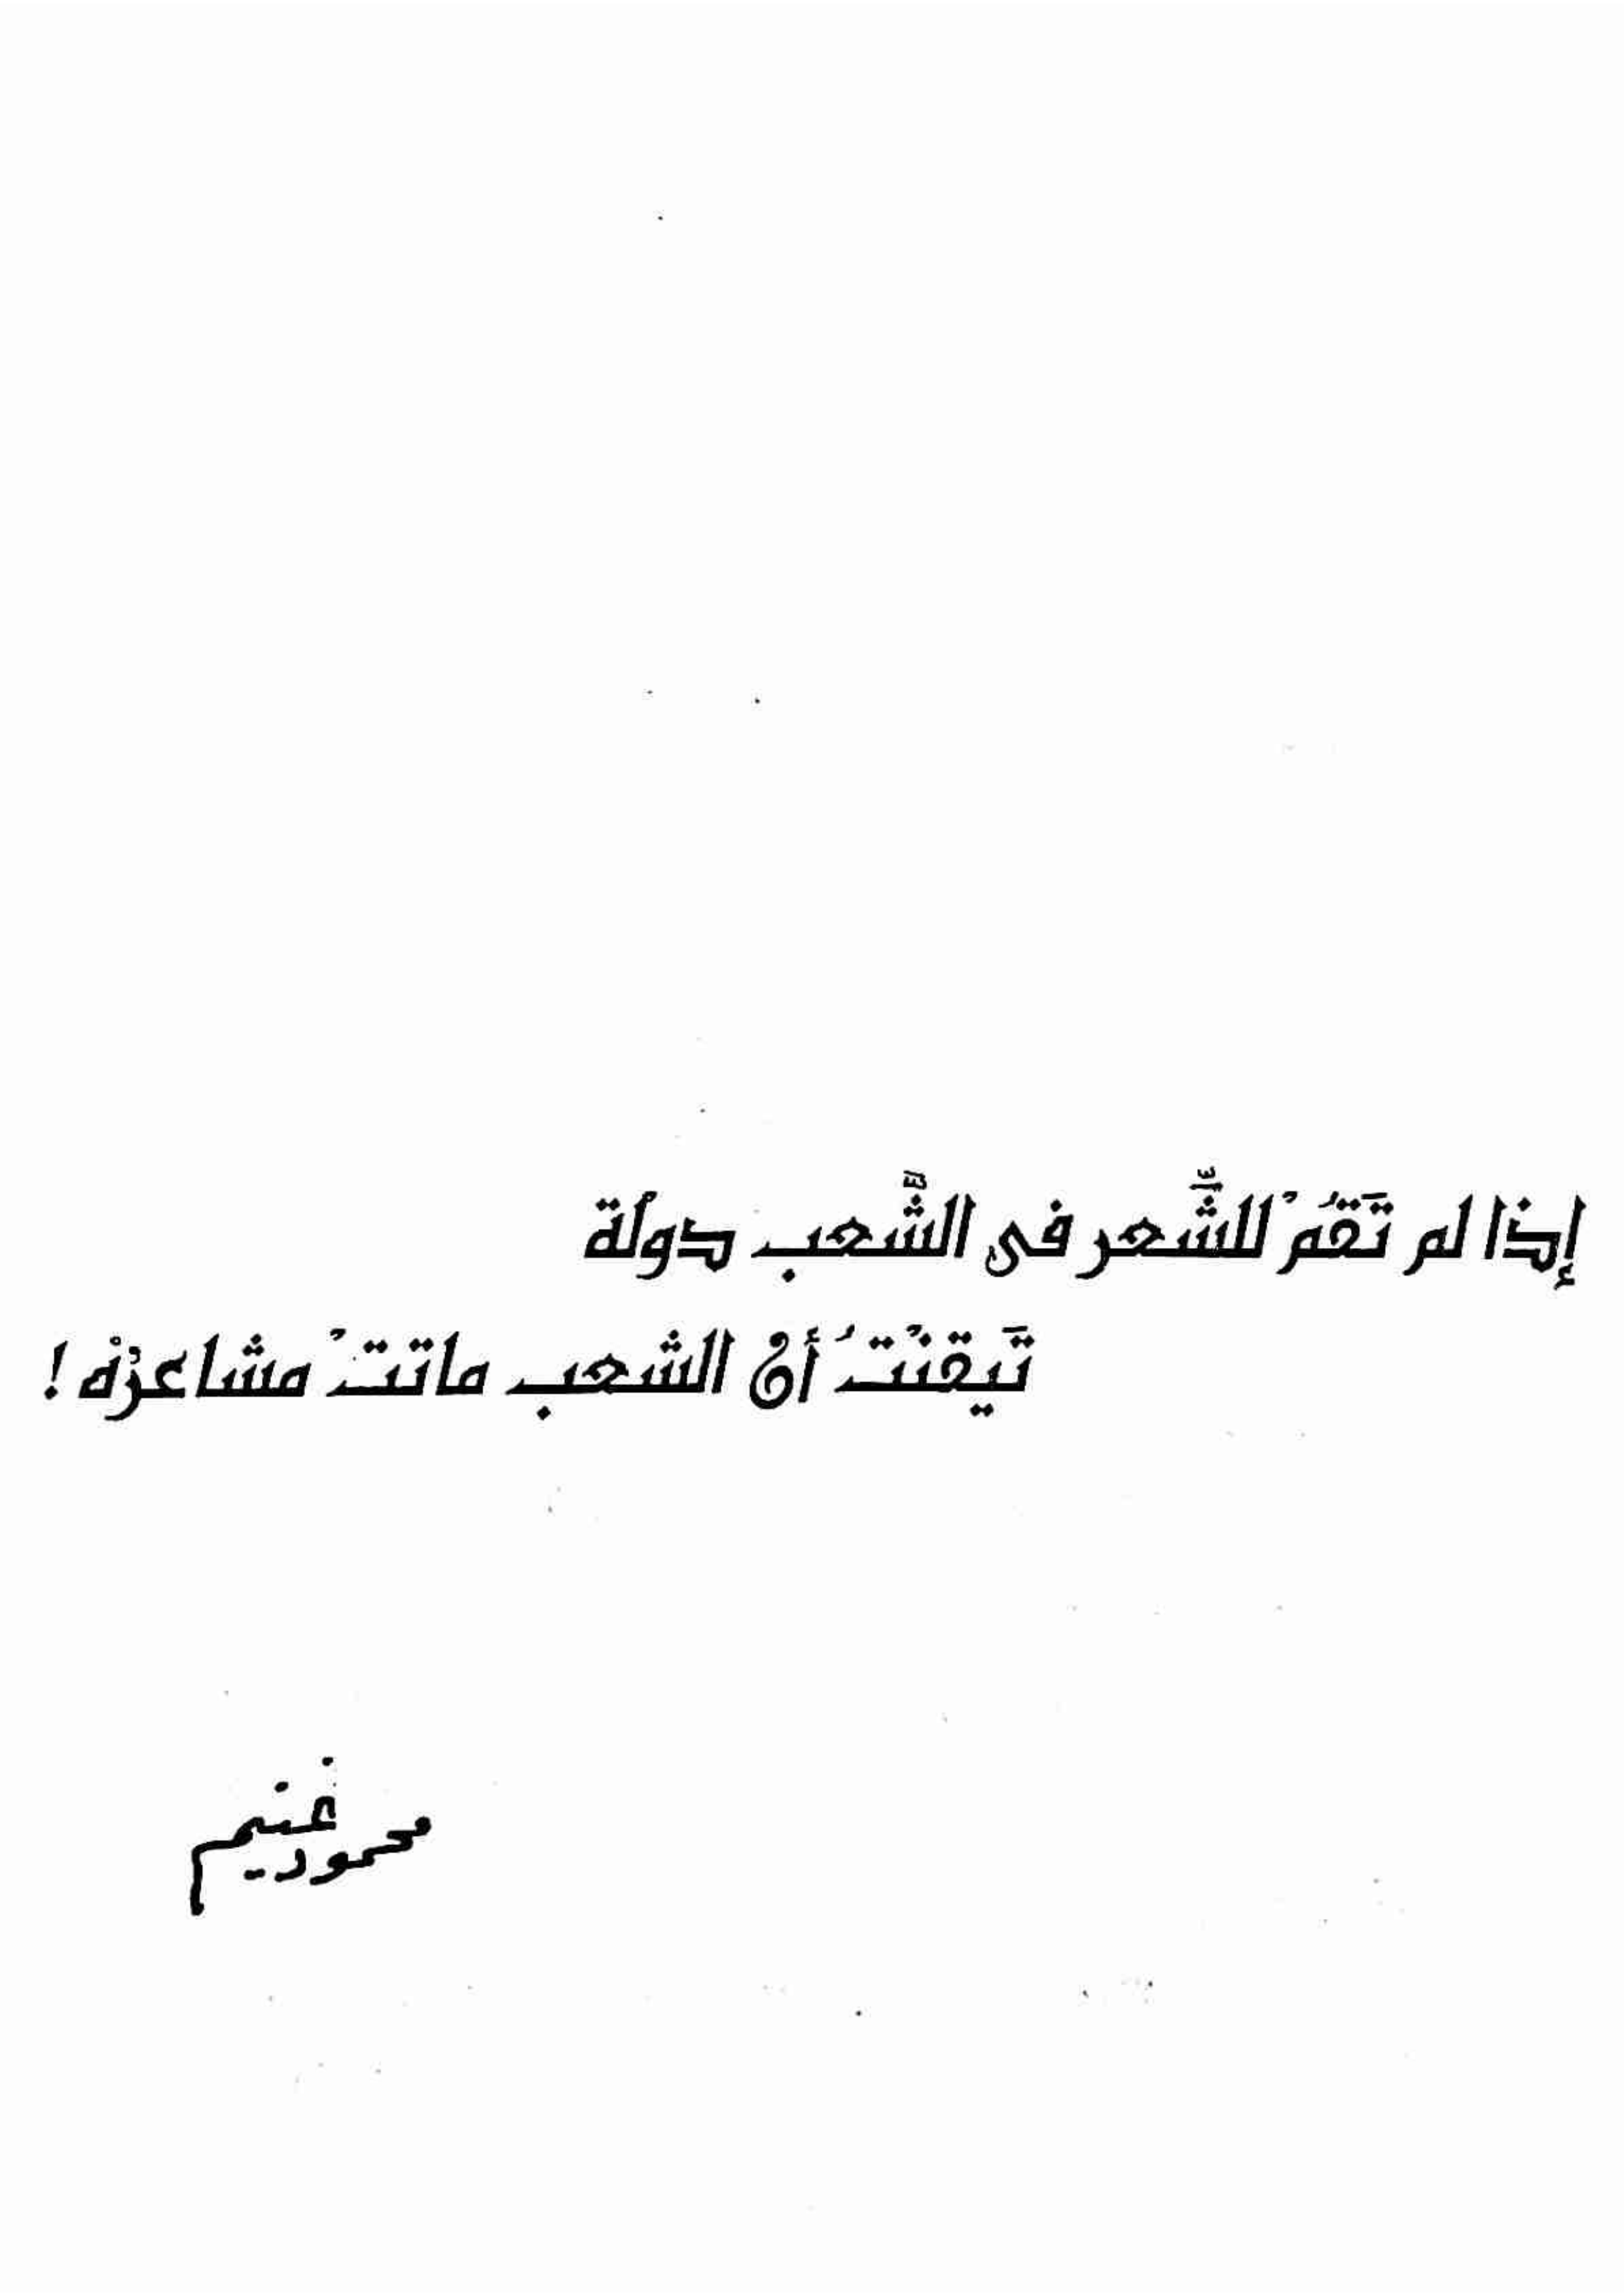 إذا لم تَقُمْ للشَّعر فى الشَّعب دولة
تَيقنْتُ أن الشعب ماتتْ مشاعرُه !
محمود غنيم